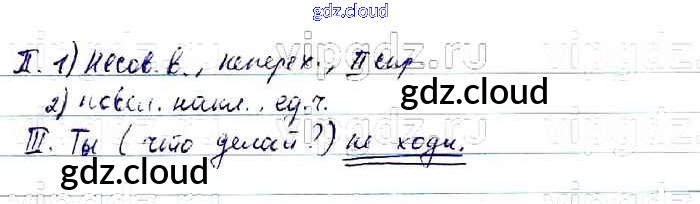 gdz.cloud
II. 1) Несов. в., неперех., II спр
2) повел. накл., ед. ч.
gdz.cloud
III. Ты (что делай?) не ходи.
gdz.cloud